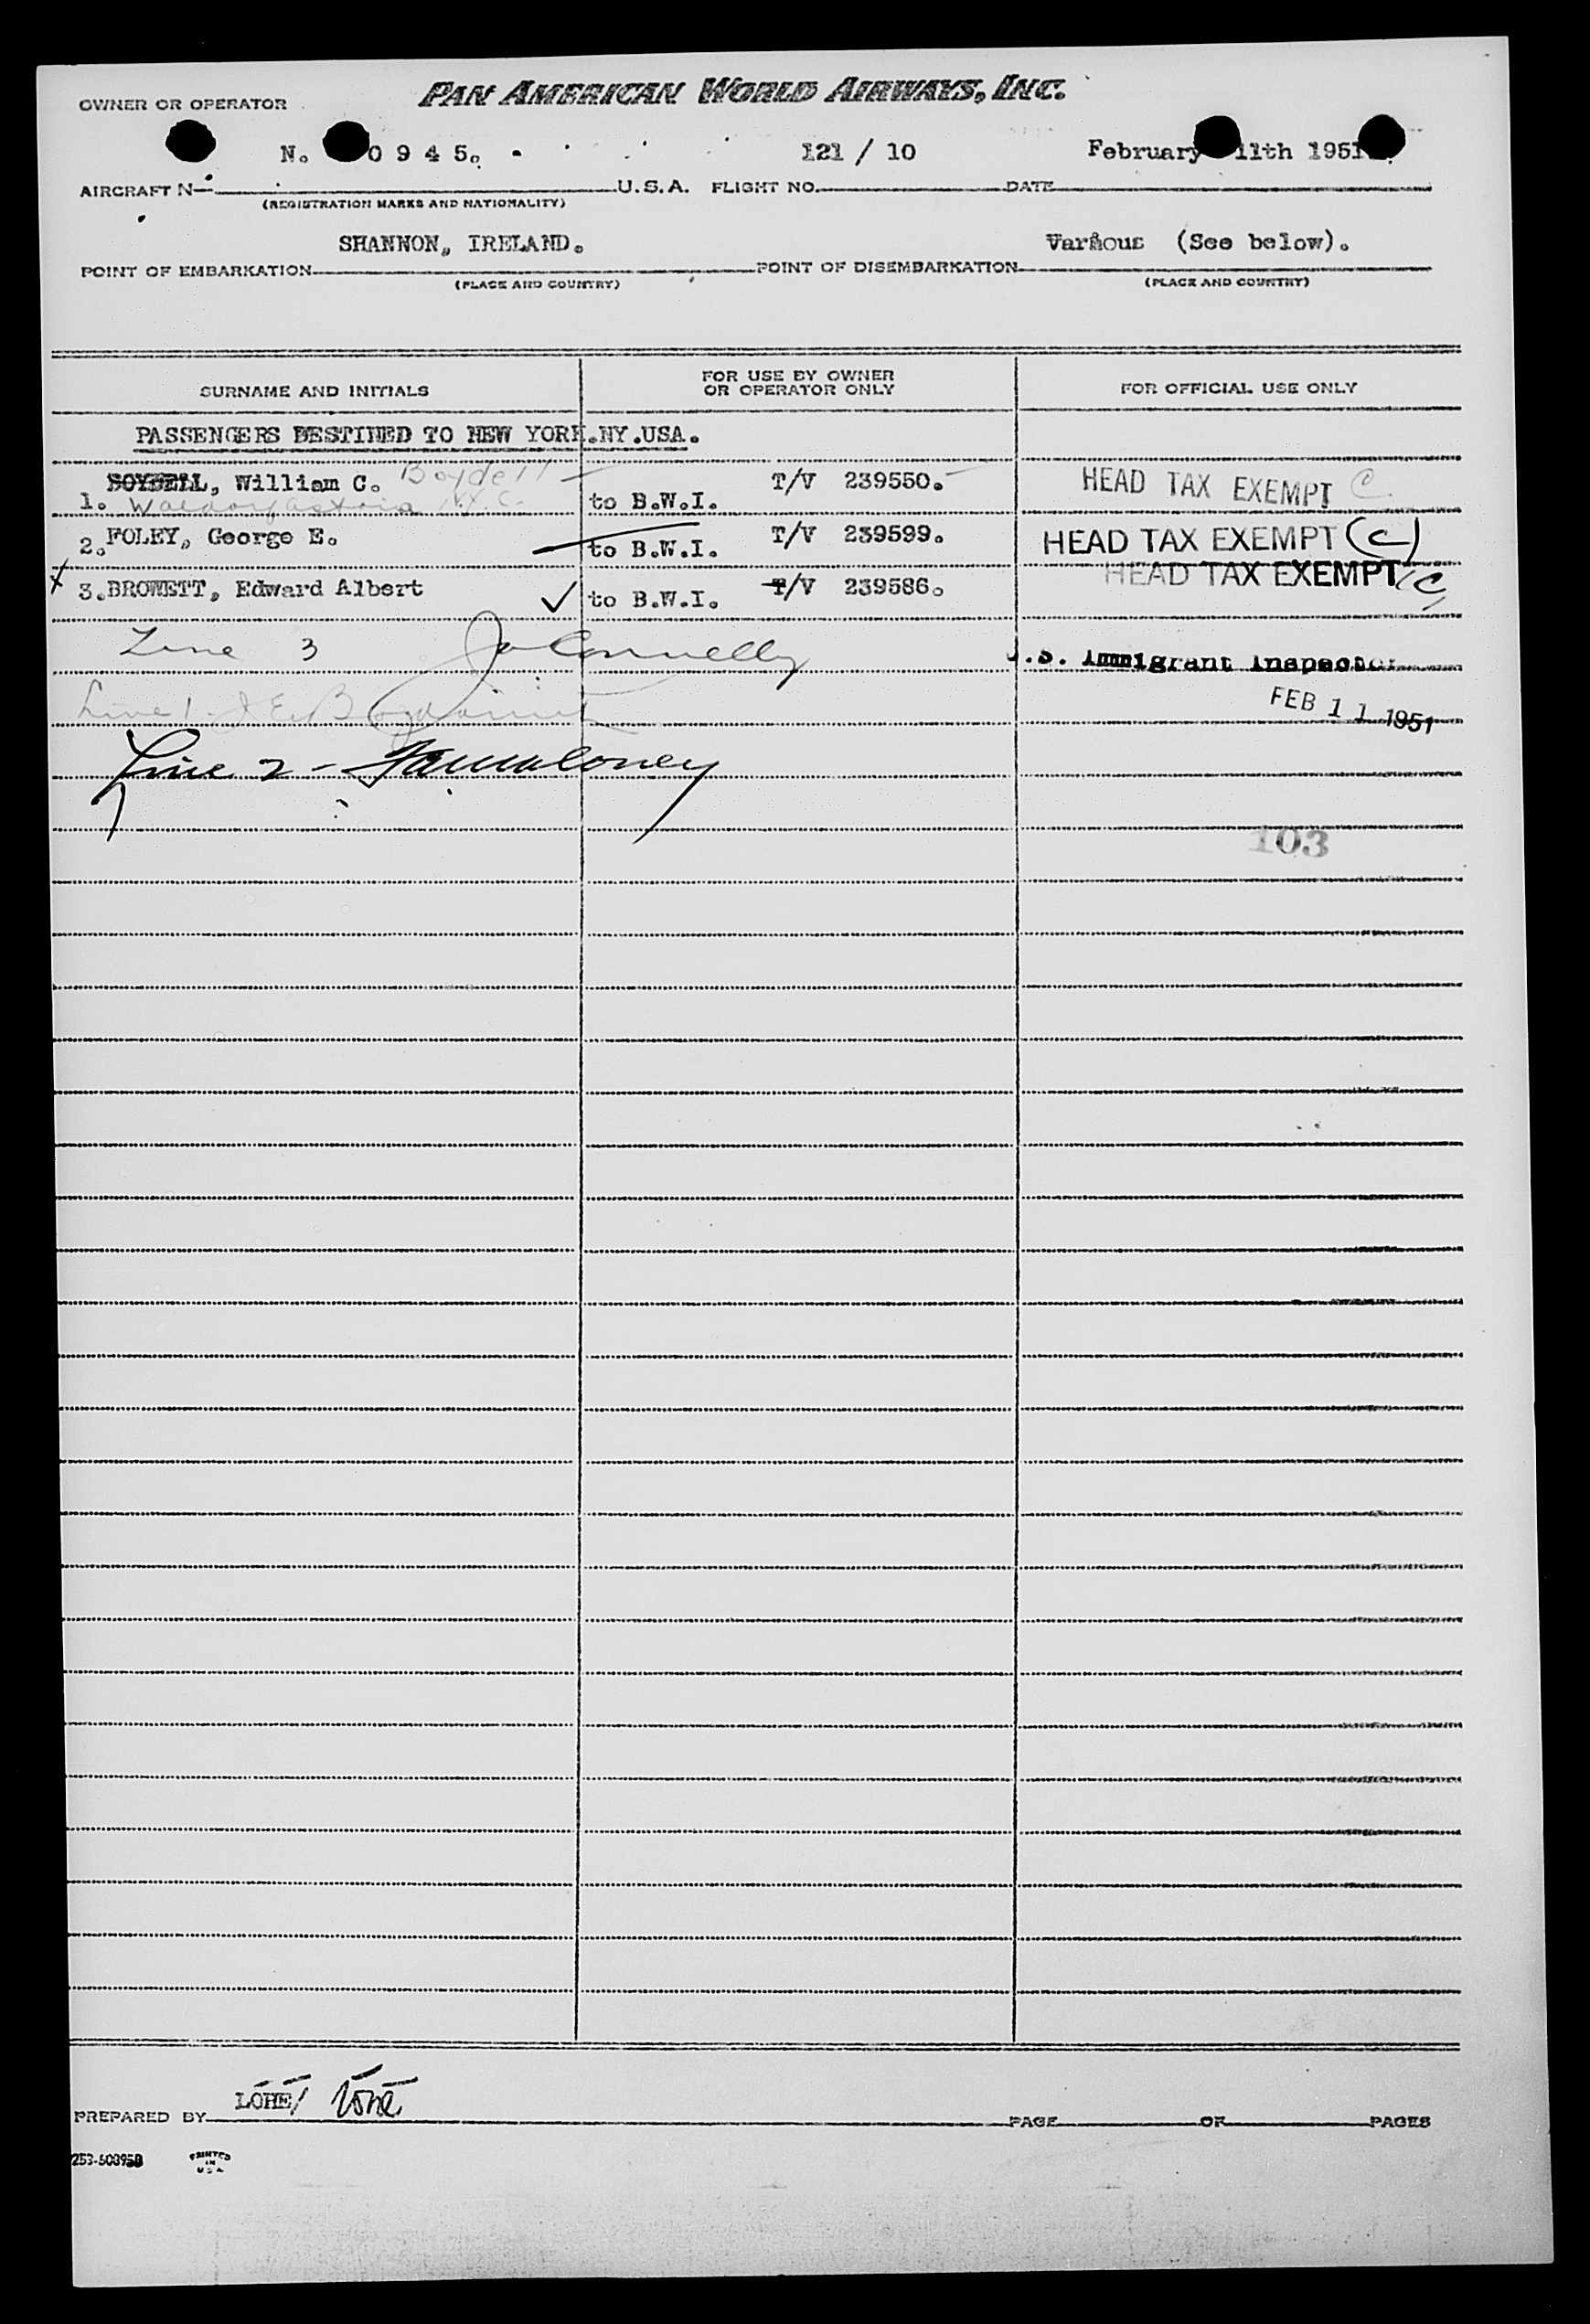 PAN AMERICAN WORLD AIRWAYS, INC.
OWNER OR OPERATOR
N. 0 9 4 5. 121 / 10 February 11th 1951
AIRCRAFT N- U.S.A. FLIGHT NO. DATE
(REGISTRATION MARKS AND NATIONALITY)
SHANNON, IRELAND. Various (See below).
POINT OF EMBARKATION POINT OF DISEMBARKATION
(PLACE AND COUNTRY) (PLACE AND COUNTRY)
SURNAME AND INITIALS FOR USE BY OWNER OR OPERATOR ONLY FOR OFFICIAL USE ONLY
PASSENGERS DESTINED TO NEW YORK.NY.USA.
William C. Boydell T/V 239550. HEAD TAX EXEMPT C
1. Waldorf Astoria N.Y.C. to B.W.I.
2. FOLEY, George E. to B.W.I. T/V 239599. HEAD TAX EXEMPT (C)
HEAD TAX EXEMPT (C)
X 3. BROWETT, Edward Albert ✓ to B.W.I. T/V 239586.
Line 3 Connelly
U.S. Immigrant Inspector
Line 1 -
FEB 11 1951
Line 2 -
103
LOHE/ Lohe
PREPARED BY PAGE OF PAGES
PRINTED IN U S A